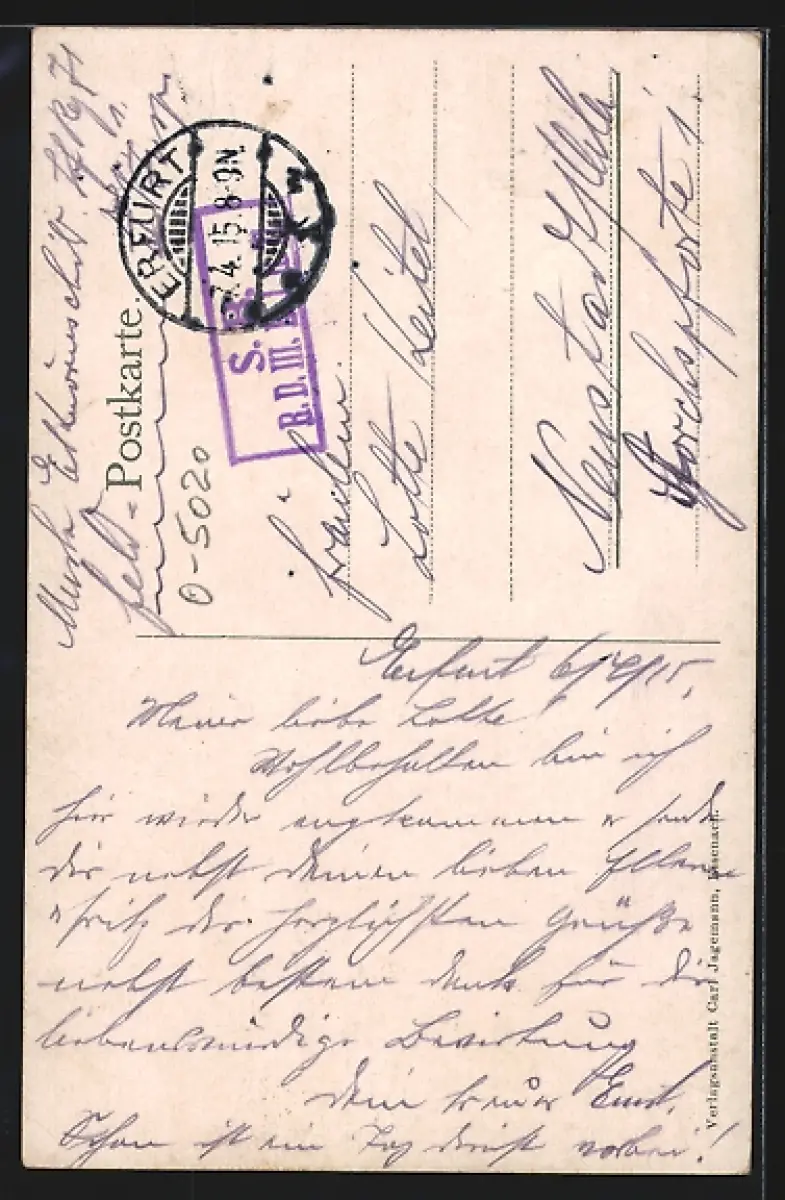 Feld-Postkarte.
ERFURT
.4.15.8-9N.
S. B.
R.D.III.
0-5020
Fräulein
Lotte Keitel
Neustadt
Storchspforte 1.
Erfurt 6/4/15,
Meine liebe Lotte!
Wohlbehalten bin ich
hier wieder angekommen u sende
dir nebst deinen lieben Eltern
u Fritz die herzlichsten Grüße
nebst bestem Dank für die
liebenswürdige Bewirtung
Dein treuer Ernst.
Schon ist ein Tag Dienst vorbei!
Verlagsanstalt Carl Jagemann, Eisenach.